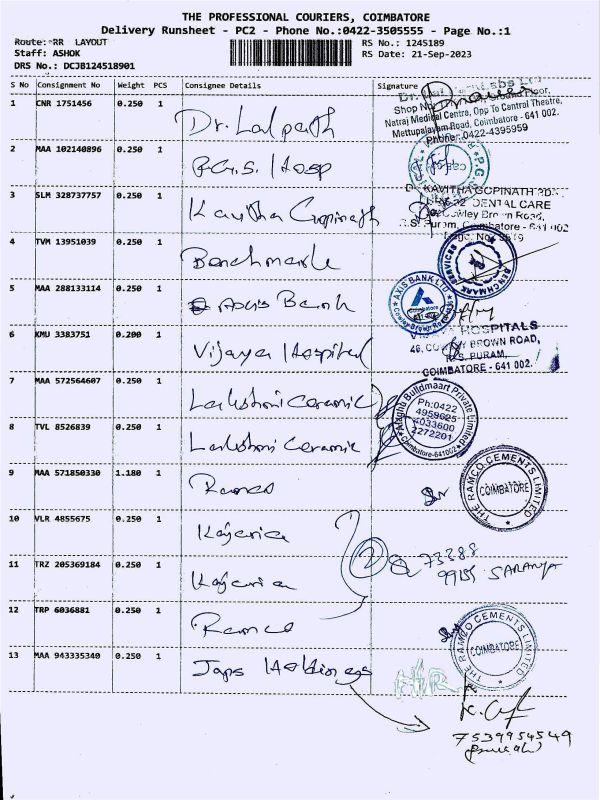 THE PROFESSIONAL COURIERS, COIMBATORE
Delivery Runsheet - PC2 - Phone No.:0422-3505555 - Page No.:1
Route: RR LAYOUT
RS No.: 1245189
Staff: ASHOK
RS Date: 21-Sep-2023
DRS No.: DCJB124518901
S No Consignment No Weight PCS Consignee Details Signature
1 CNR 1751456 0.250 1 Dr. Lal path
Shop No
Natraj Medical Centre, Opp To Central Theatre,
Mettupalayam Road, Coimbatore - 641 002.
Phone: 0422-4395959
2 MAA 102140896 0.250 1 P.G.S. Hosp
3 SLM 328737757 0.250 1 Kavitha Gopinath
KAVITHA GOPINATH
DENTAL CARE
Cowley Brown Road,
R.S. Puram, Coimbatore - 641 002
4 TVM 13951039 0.250 1 Benchmark
BENCHMARK SERVICES
5 MAA 288133114 0.250 1 Axis Bank
AXIS BANK LTD
Coimbatore
Cowley Brown Road
6 KMU 3383751 0.200 1 Vijaya Hospital
HOSPITALS
46, COWLEY BROWN ROAD,
R.S. PURAM,
COIMBATORE - 641 002.
7 MAA 572564607 0.250 1 Lakshmi Ceramic
Buildmaart Private Limited
Ph:0422
4959625
4033600
2272201
Coimbatore-641002
8 TVL 8526839 0.250 1 Lakshmi Ceramic
9 MAA 571850330 1.180 1 Ramco
THE RAMCO CEMENTS LIMITED
COIMBATORE
10 VLR 4855675 0.250 1 Kajaria
11 TRZ 205369184 0.250 1 Kajaria
2
73288
99155 SARANYA
12 TRP 6036881 0.250 1 Ramco
THE RAMCO CEMENTS LIMITED
COIMBATORE
13 MAA 943335340 0.250 1 Japs Holdings
7539954549